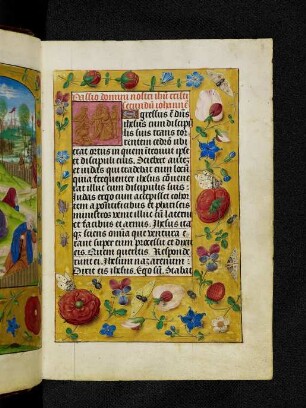 Passio domini nostri ihu cristi
secundu iohanne
Egressus e dns
ihesus cum discipu
lis suis trans tor
rentem cedro ubi
erat ortus in quem introiuit ipse
et discipuli eius. Sciebat autez
et iudas qui tradebat eum locu
quia frequenter ihesus conuene
rat illuc cum discipulis suis:
Judas ergo cum accepisset cohor
tem a pontificibus et phariseis
ministros venit illuc cu laternis
et facibus et armis. Ihesus ita
qz sciens omnia que ventura e
rant super eum processit et dixit
eis. Quem queritis. Responde
runt ei. Ihesum nazarenum:
Dixit eis ihesus. Ego su. Stabat